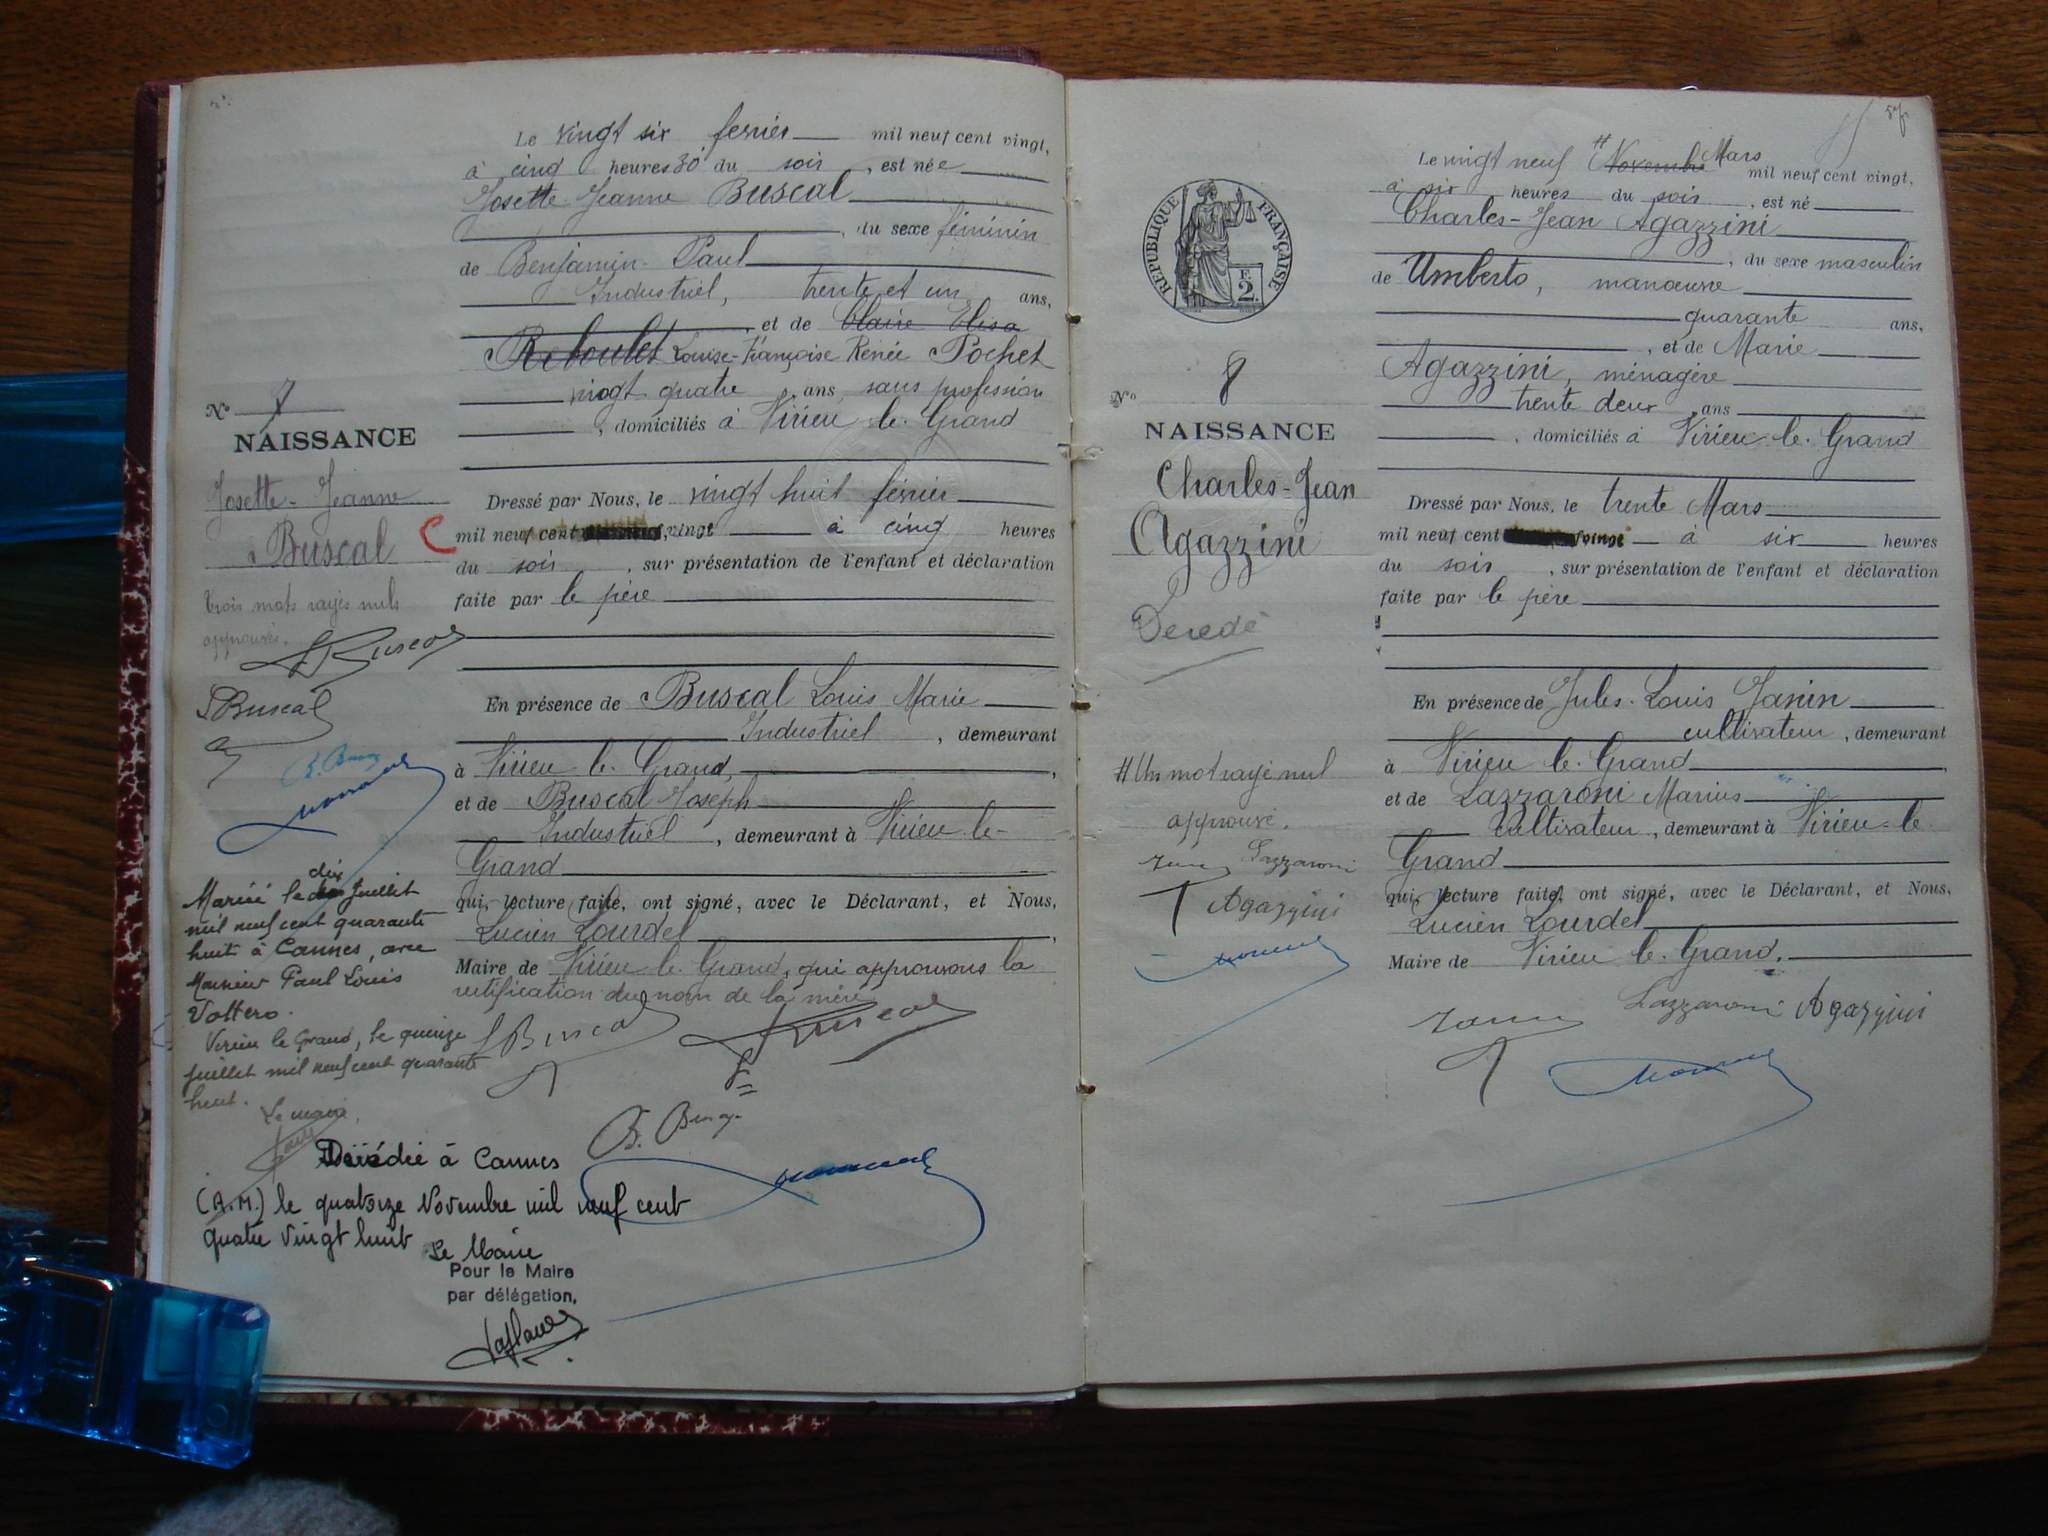 Le vingt six fevrier mil neuf cent vingt,
à cinq heures 30 du soir, est née
Josette-Jeanne Buscal
, du sexe féminin
de Benjamin-Paul
Industriel, trente et un ans,
, et de Claire Elisa
Reboulet Louise-Françoise Renée Pochet
vingt quatre ans, sans profession
, domiciliés à Virieu-le-Grand
Nº 7
NAISSANCE
Josette-Jeanne
Buscal
trois mots rayés nuls
approuvés.
Dressé par Nous, le vingt huit février
mil neuf cent vingt à cinq heures
du soir, sur présentation de l'enfant et déclaration
faite par le père
Buscal
En présence de Buscal Louis Marie
Industriel, demeurant
à Virieu-le-Grand,
et de Buscal Joseph
Industriel, demeurant à Virieu-le-
Grand
qui, lecture faite, ont signé, avec le Déclarant, et Nous,
Lucien Lourdel
Maire de Virieu-le-Grand, qui approuvons la
rectification du nom de la mère
Buscal
Buscal
Marié le dix Juillet
mil neuf cent quarante
huit à Cannes, avec
Monsieur Paul Louis
Vottero.
Virieu le Grand, le quinze
juillet mil neuf cent quarante
huit.
Le maire,
Décédée à Cannes
(A.M.) le quatorze Novembre mil neuf cent
quatre vingt huit
Le Maire
Pour le Maire
par délégation,
57
Le vingt neuf # Novembre Mars mil neuf cent vingt,
à six heures du soir, est né
Charles-Jean Agazzini
, du sexe masculin
de Umberto, manœuvre
quarante ans,
, et de Marie
Agazzini, ménagère
trente deux ans
, domiciliés à Virieu-le-Grand
RÉPUBLIQUE FRANÇAISE
F.
2.
Nº 8
NAISSANCE
Charles-Jean
Agazzini
Décédé
Dressé par Nous, le trente Mars
mil neuf cent vingt à six heures
du soir, sur présentation de l'enfant et déclaration
faite par le père
En présence de Jules-Louis Janin
cultivateur, demeurant
à Virieu-le-Grand
et de Lazzaroni Marius
Cultivateur, demeurant à Virieu-le-
Grand
qui, lecture faite, ont signé, avec le Déclarant, et Nous,
Lucien Lourdel
Maire de Virieu-le-Grand.
# Un mot rayé nul
approuvé.
Lazzaroni
Agazzini
Lazzaroni Agazzini